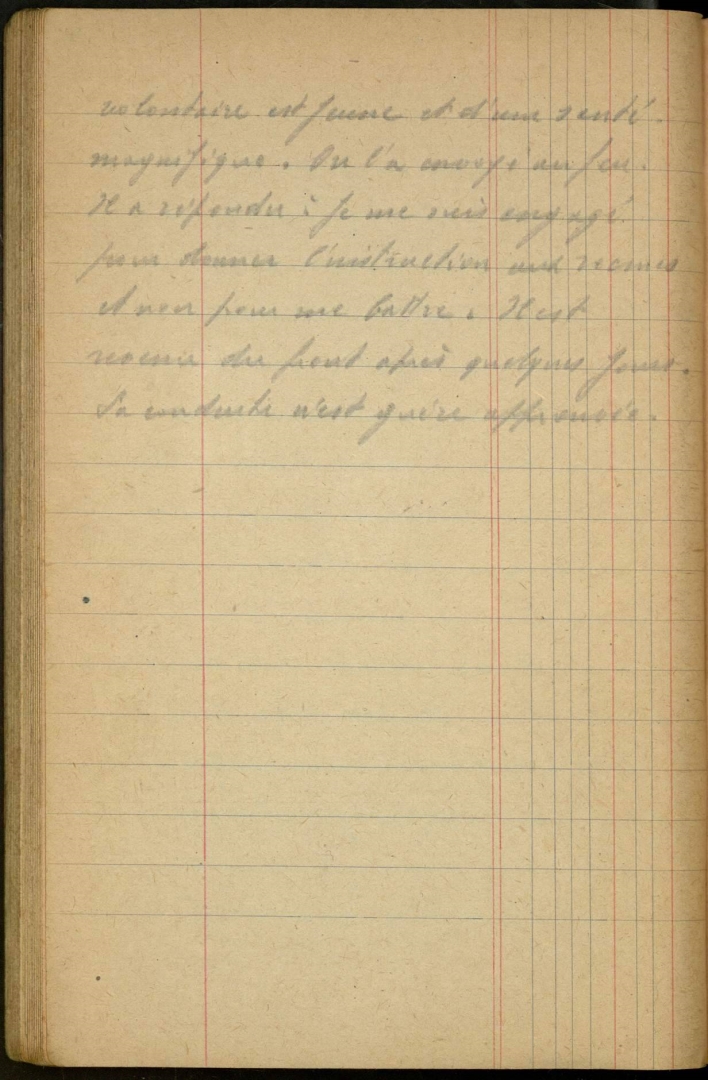 volontaire est jeune et d'une santé
magnifique. On l'a envoyé au feu.
Il a répondu : Je me suis engagé
pour donner l'instruction aux recrues
et non pour me battre. Il est
revenu du front après quelques jours.
Sa conduite n'est guère approuvée.